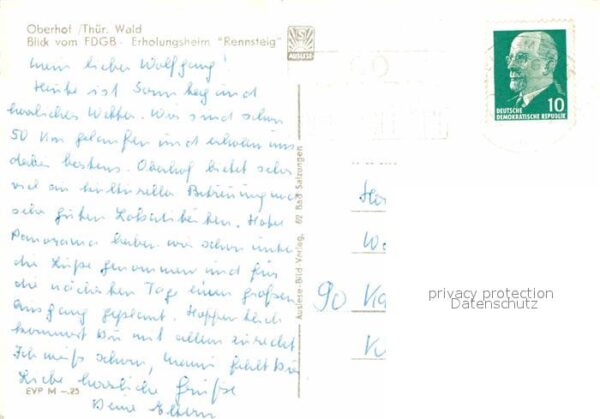 Oberhof /Thür. Wald
Blick vom FDGB - Erholungsheim "Rennsteig"
AUSLESE
Mein lieber Wolfgang!
Heute ist Sonntag und
herrliches Wetter. Wir sind schon
50 Km gelaufen und erholen uns
dabei bestens. Oberhof bietet sehr
viel an kultureller Betreuung und
sehr guten Lokalitäten. Hotel
Panorama haben wir schon unter
die Lupe genommen und für
die nächsten Tage einen großen
Ausgang geplant. Hoffentlich
kommst Du mit allem zurecht
Ich muß schon, Mami fehlt Dir
Liebe herzliche Grüße
Deine Eltern
EVP M -.25
Auslese-Bild-Verlag, 62 Bad Salzungen
10
DEUTSCHE
DEMOKRATISCHE REPUBLIK
90 Ka
privacy protection
Datenschutz